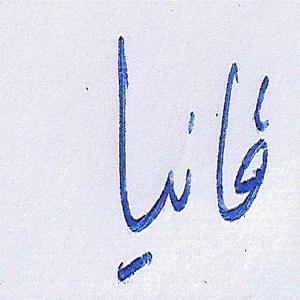 فانيا